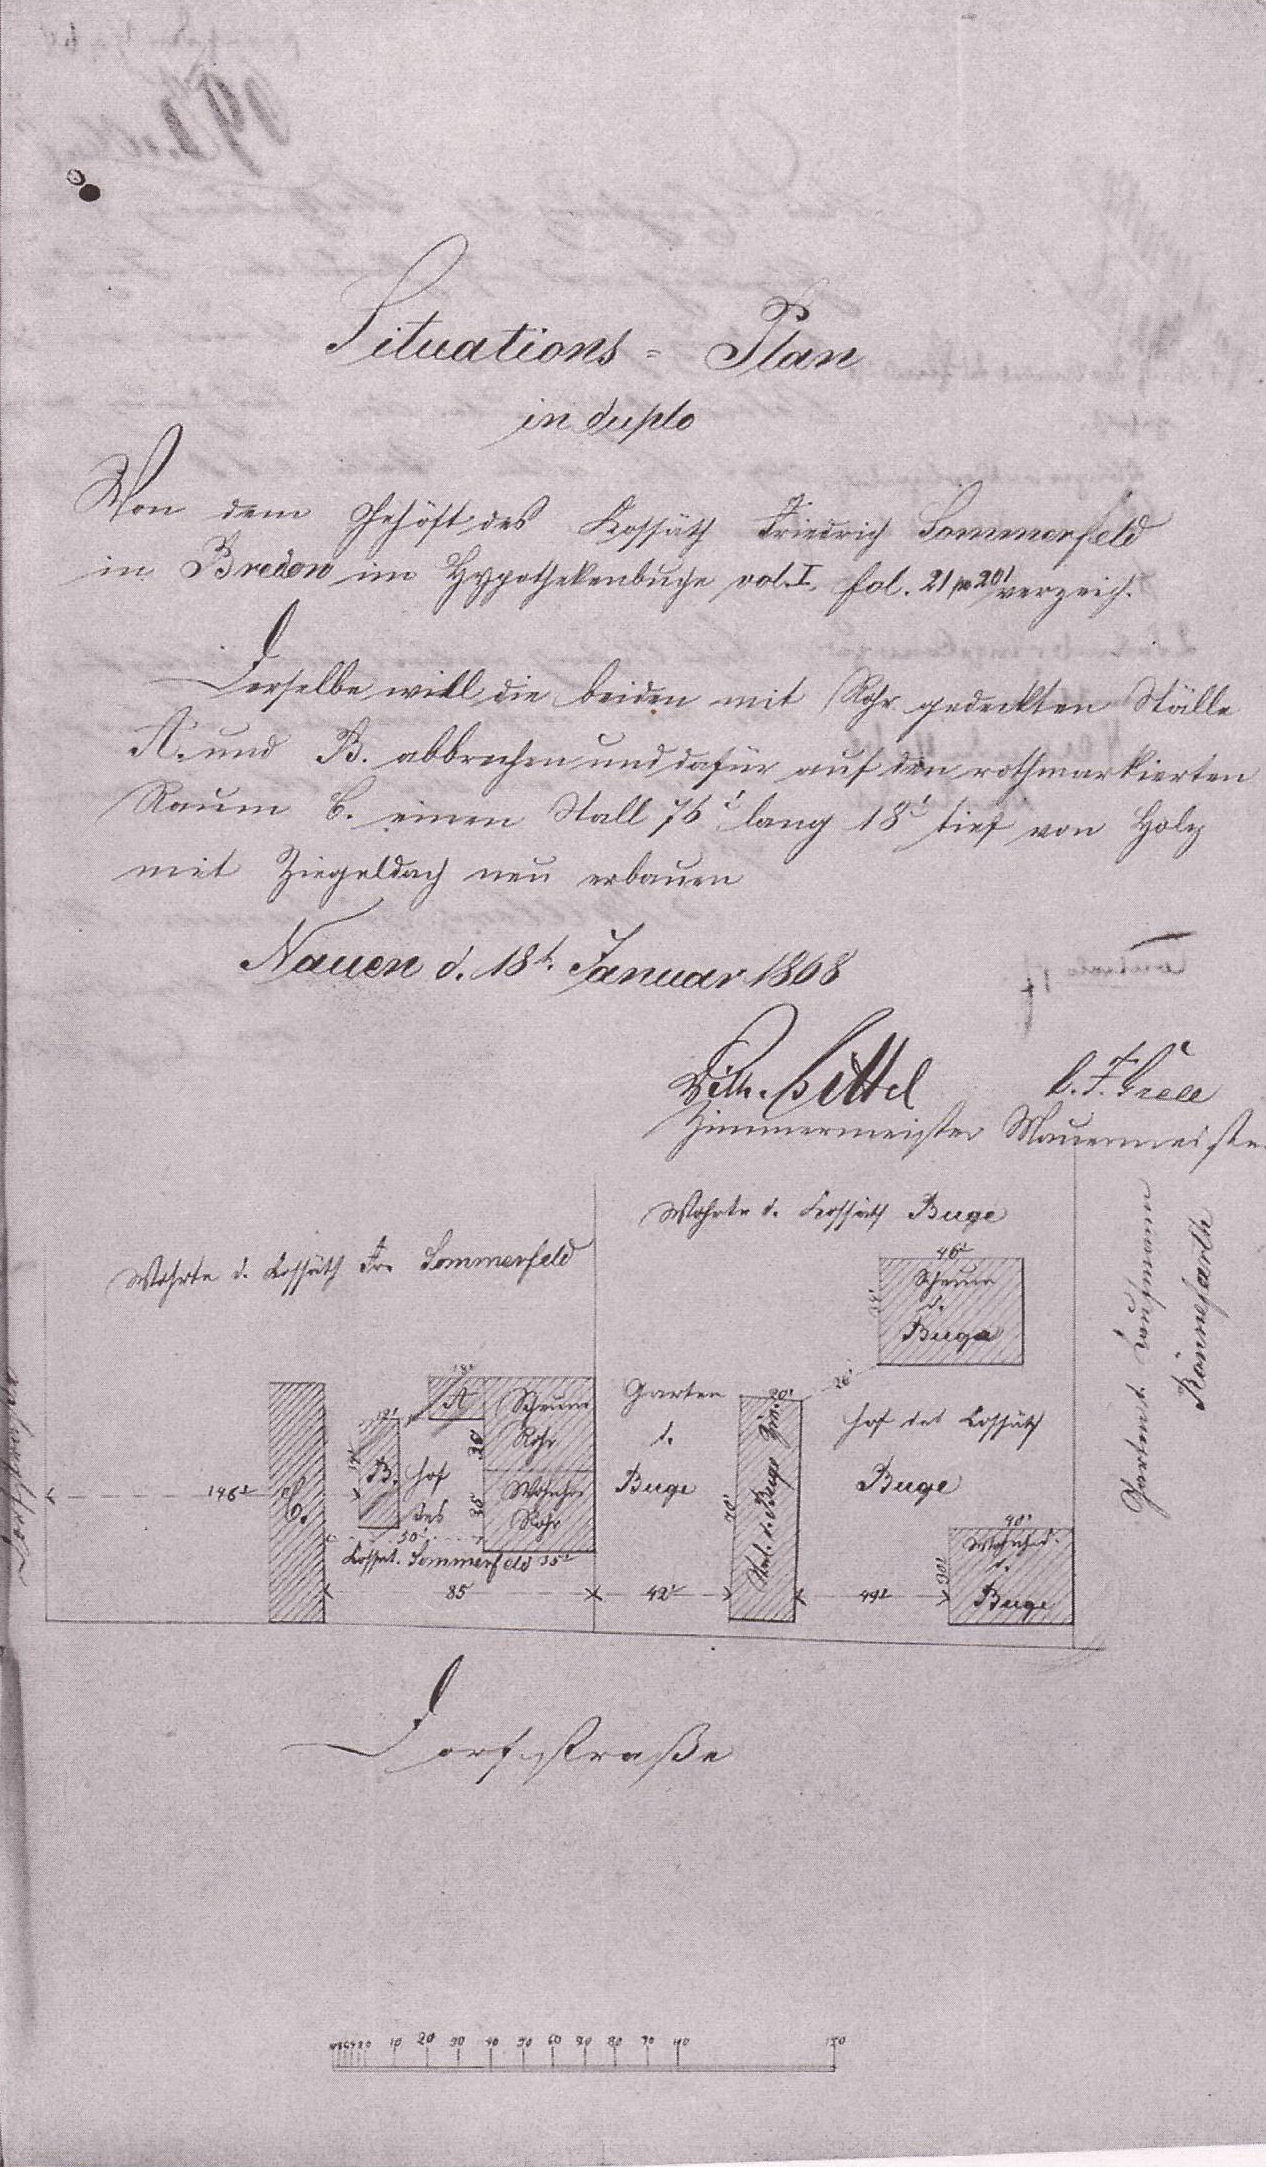 Situations = Plan
in duplo
Von dem Gehöft des Kossäth Friedrich Sommerfeld
in Bredow im Hypothekenbuche vol. I. fol. 21 verzeich.
Derselbe will die beiden mit Rohr gedeckten Ställe
A. und B. abbrechen und dafür auf den rothmarkierten
Raum C. einen Stall 76' lang 18' tief von Holz
mit Ziegeldach neu erbauen
Nauen d. 18t. Januar 1868
Wilh.
Zimmermeister Maurermeister
Wöhrte d. Kossäth Buge
Wöhrte d. Kossäth Fr. Sommerfeld
46'
Scheune
d.
Buge
Garten d. Kaufmann
Rönnefarth
A
Scheune
Rohr
Garten
d.
Buge
20'
26'
Hof des Kossäth
Buge
146'
C.
12'
B.
Hof
des
Kossät. Sommerfeld
50'
Wohnhs.
Rohr
35'
70'
40'
Wohnhs.
d.
Buge
30'
85
42'
49'
Dorfstraße
10 20 30 40 50 60 70 80 90